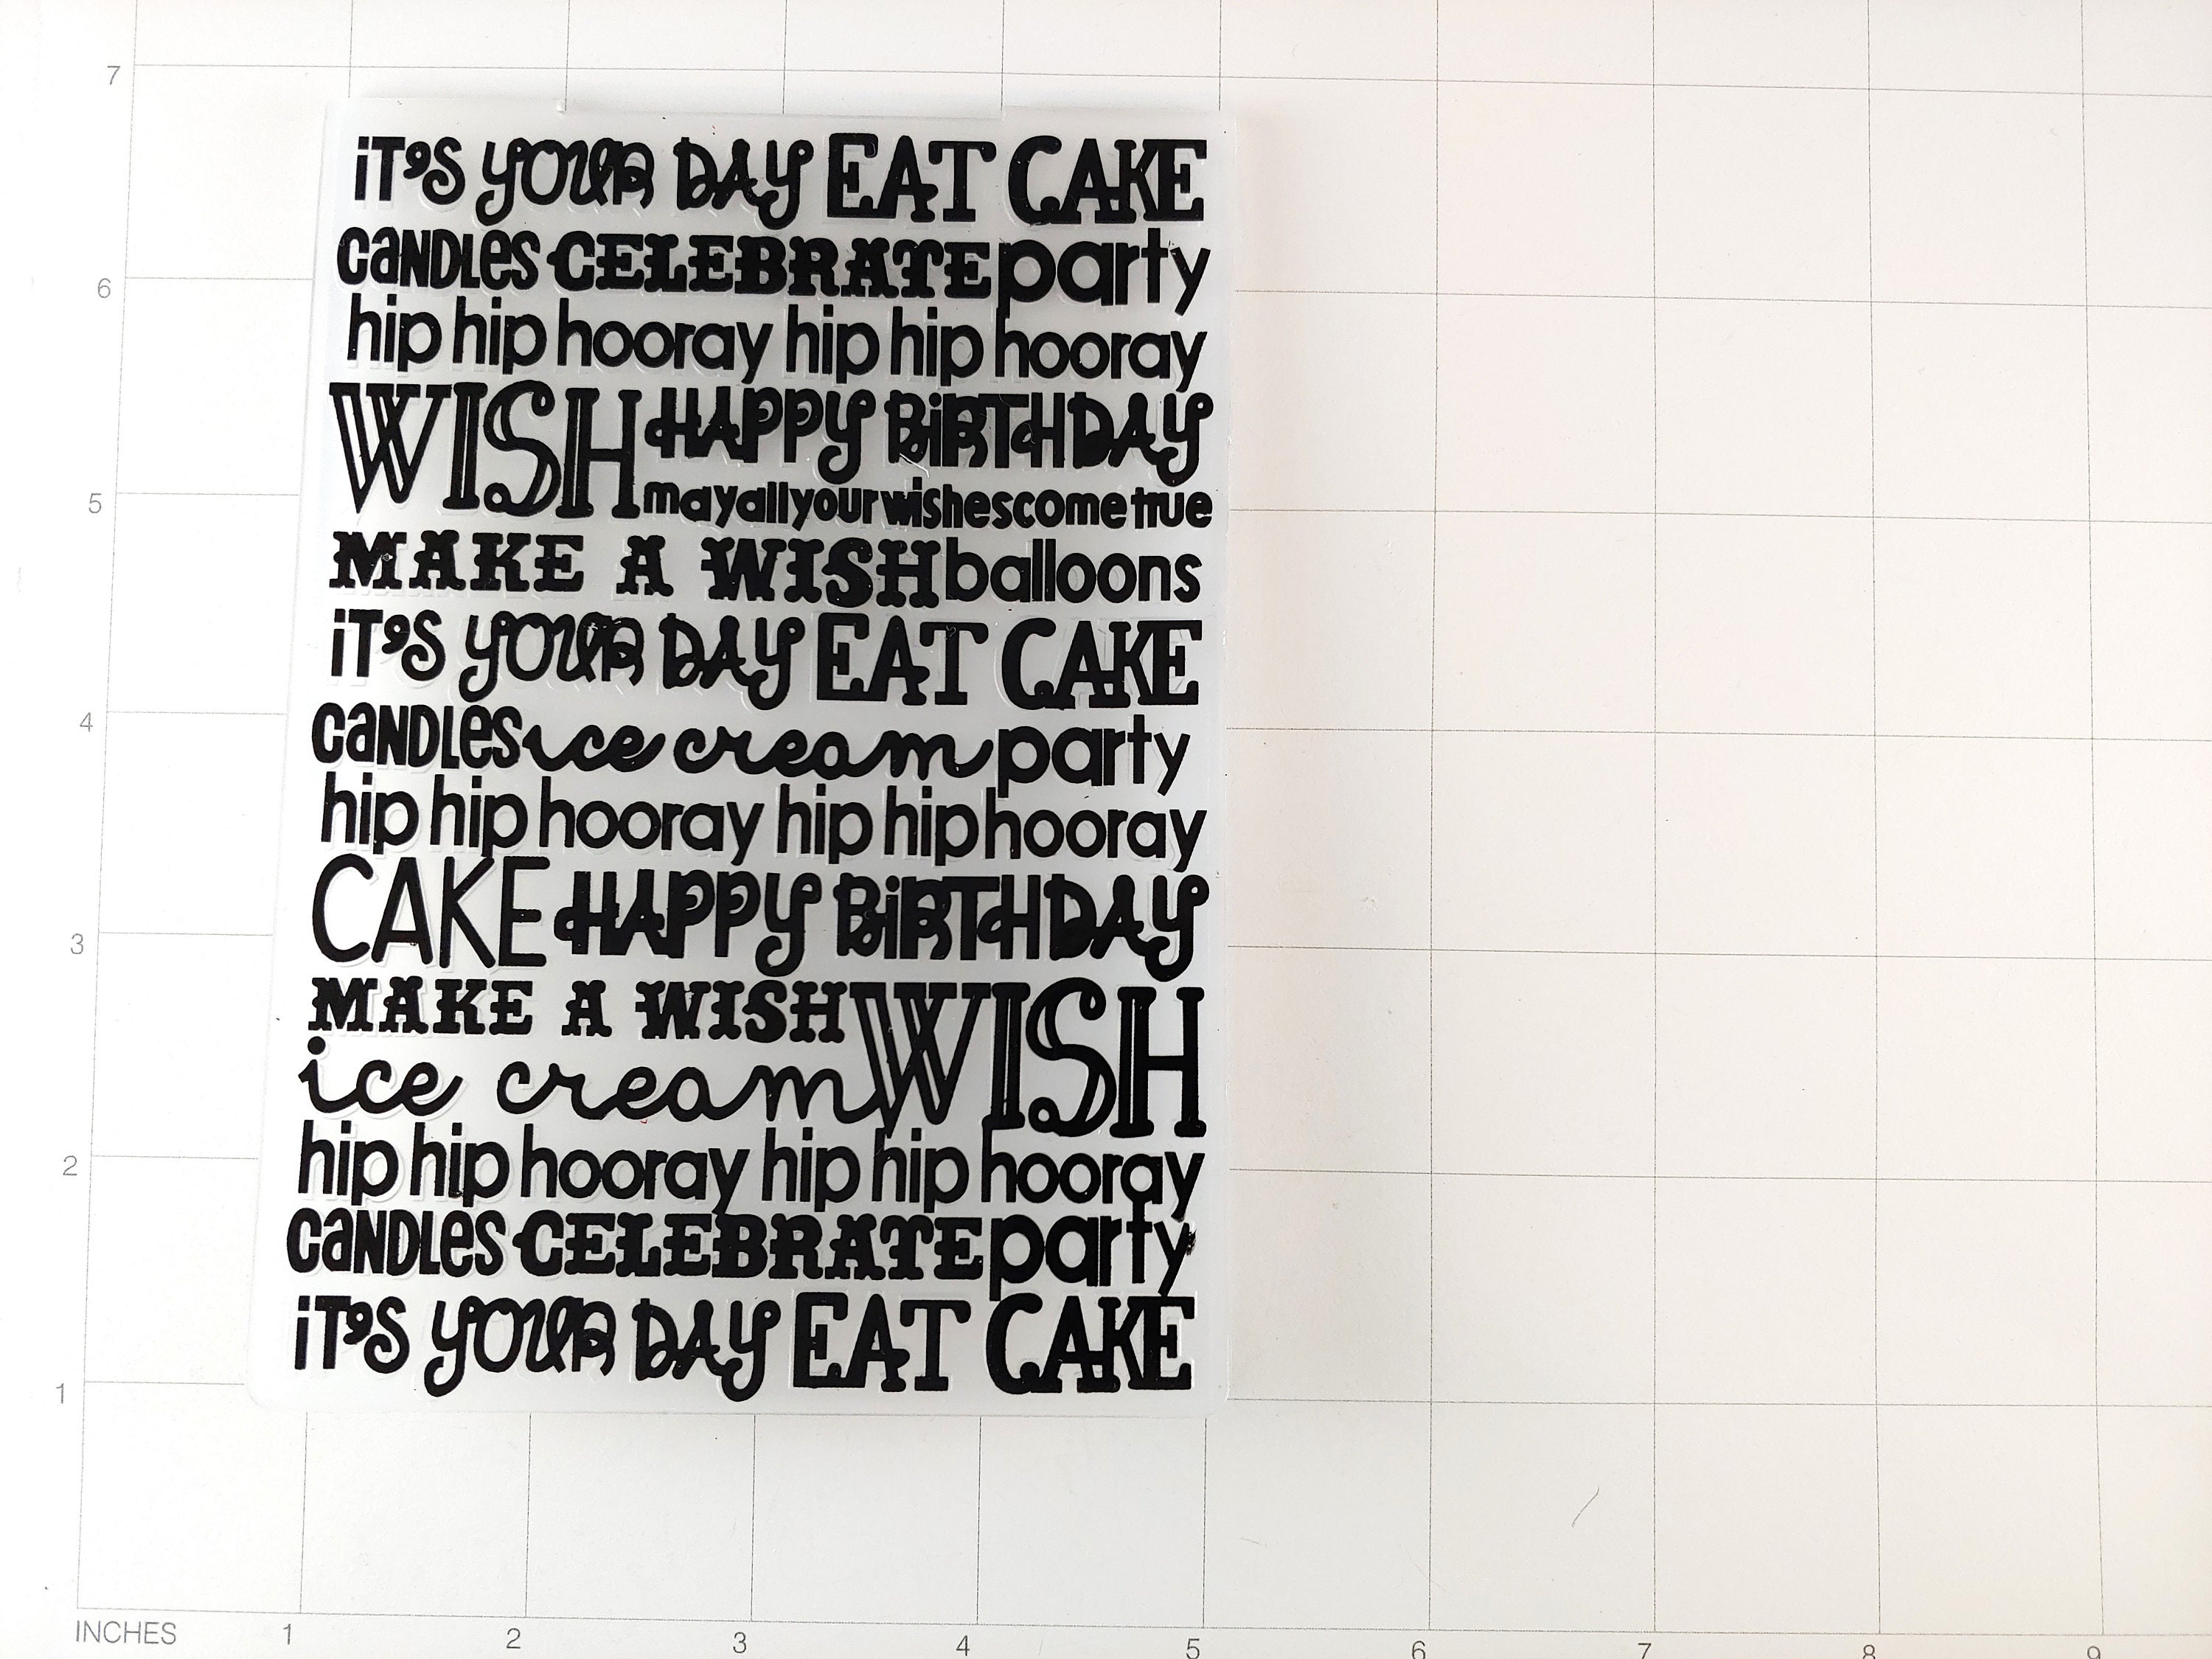 7
iT'S YOUR DAY EAT CAKE
caNDLes CELEBRATE party
6
hip hip hooray hip hip hooray
WISH HAPPY BiRTHDAY
5
may all your wishes come true
MAKE A WISH balloons
iT'S YOUR DAY EAT CAKE
4
caNDLes ice cream party
hip hip hooray hip hip hooray
CAKE HAPPY BiRTHDAY
3
MAKE A WISH WISH
ice cream
2
hip hip hooray hip hip hooray
caNDLes CELEBRATE party
iT'S YOUR DAY EAT CAKE
1
INCHES 1 2 3 4 5 6 7 8 9